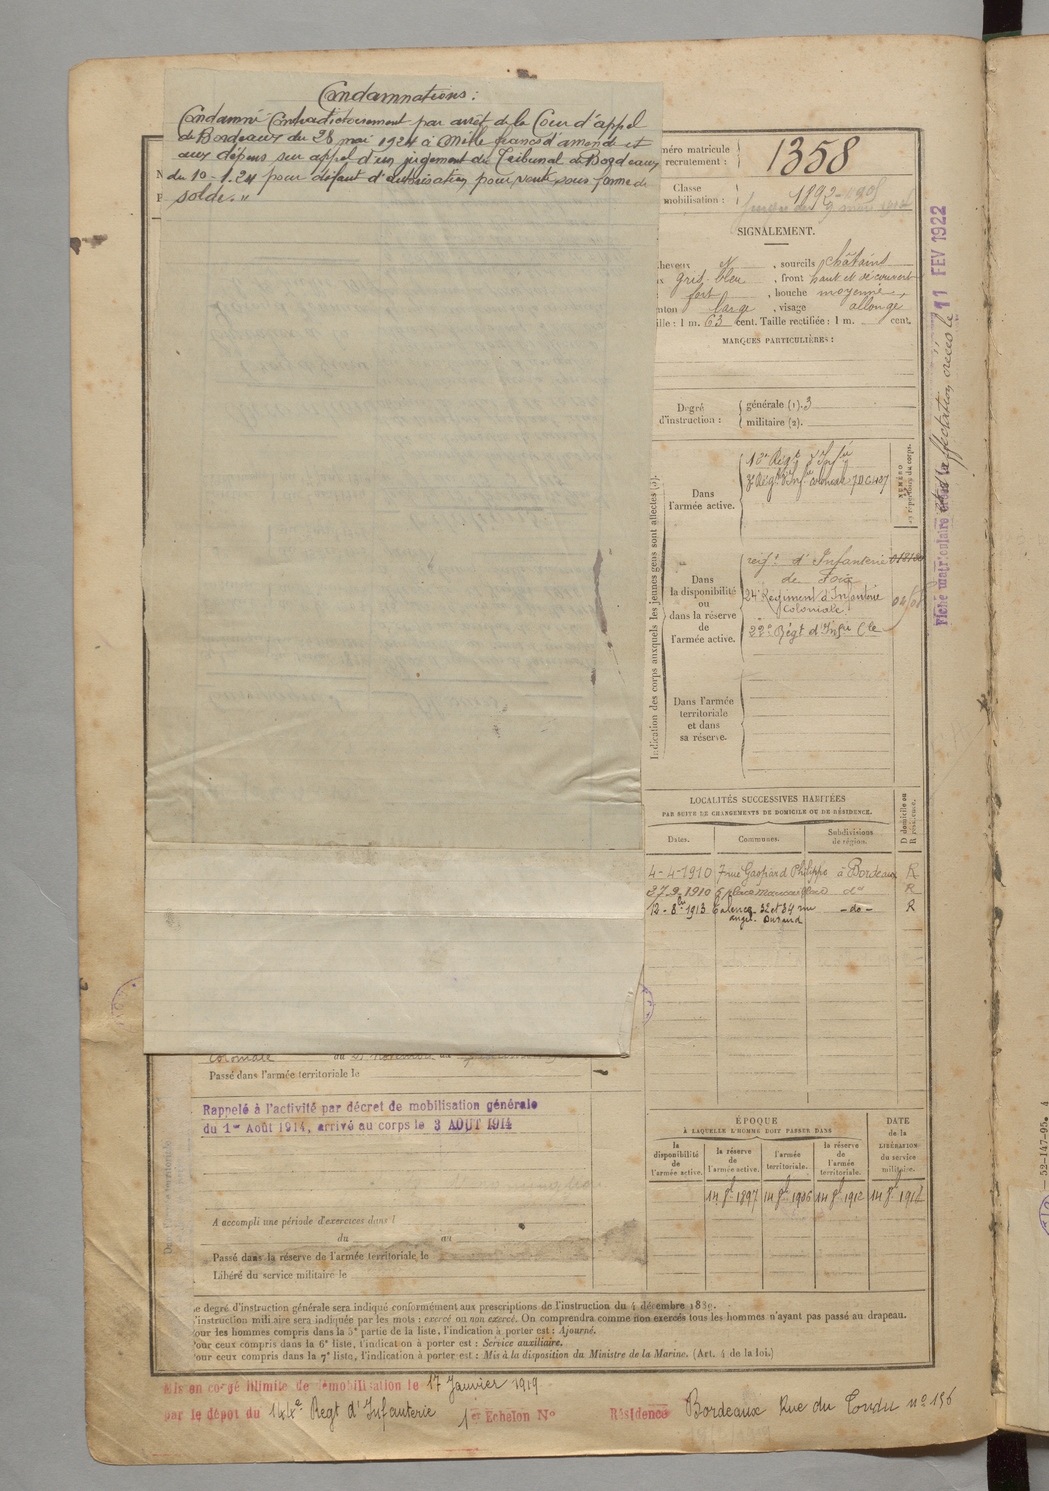 Condamnations:
Condamné Contradictoirement par arrêt de la Cour d'appel
de Bordeaux du 28 mai 1924 à mille francs d'amende et
aux dépens sur appel d'un jugement du Tribunal de Bordeaux
du 10-1-24 pour défaut d'autorisation pour vente sous forme de
solde. "
néro matricule
recrutement :
1358
Classe
mobilisation :
1892
SIGNALEMENT.
heveux N , sourcils châtains
x gris bleu , front haut et découvert
fort , bouche moyenne
nton large , visage allongé
ille : 1 m. 63 cent. Taille rectifiée : 1 m. cent.
MARQUES PARTICULIÈRES :
Degré
d'instruction :
générale (1). 3
militaire (2).
Indication des corps auxquels les jeunes gens sont affectés (3).
Dans
l'armée active.
NUMÉRO
au répertoire du corps.
Dans
la disponibilité
ou
dans la réserve
de
l'armée active.
régt d'Infanterie
de Foix
24e Régiment d'Infanterie
Coloniale
22e Régt d'Infie Cle
Dans l'armée
territoriale
et dans
sa réserve.
LOCALITÉS SUCCESSIVES HABITÉES
PAR SUITE DE CHANGEMENTS DE DOMICILE OU DE RÉSIDENCE.
D domicile ou
R résidence.
Dates. Communes. Subdivisions
de région.
4-4-1910 7 rue Gaspard Philippe à Bordeaux R
1910 do R
12-8bre 1913 Talence 32 et 34 rue -do- R
ange. Durand
coloniale
Passé dans l'armée territoriale le
Rappelé à l'activité par décret de mobilisation générale
du 1er Août 1914, arrivé au corps le 3 AOUT 1914
A accompli une période d'exercices dans l
du au
Passé dans la réserve de l'armée territoriale le
Libéré du service militaire le
ÉPOQUE
À LAQUELLE L'HOMME DOIT PASSER DANS
DATE
de la
LIBÉRATION
du service
militaire.
la
disponibilité
de
l'armée active.
la réserve
de
l'armée active.
l'armée
territoriale.
la réserve
de
l'armée
territoriale.
14 9bre 1897 14 9bre 1906 14 9bre 1912 14 9bre 1918
e degré d'instruction générale sera indiqué conformément aux prescriptions de l'instruction du 4 décembre 1889.
'instruction militaire sera indiquée par les mots : exercé ou non exercé. On comprendra comme non exercés tous les hommes n'ayant pas passé au drapeau.
our les hommes compris dans la 5e partie de la liste, l'indication à porter est : Ajourné.
our ceux compris dans la 6e liste, l'indication à porter est : Service auxiliaire.
our ceux compris dans la 7e liste, l'indication à porter est : Mis à la disposition du Ministre de la Marine. (Art. 4 de la loi.)
Mis en congé illimité de démobilisation le 17 Janvier 1919
par le dépôt du 144e Regt d'Infanterie 1er Echelon No Résidence Bordeaux Rue du Tondu no 156
Fiche matriculaire et d'affectation, créées le 11 FEV 1922
52-147-95.